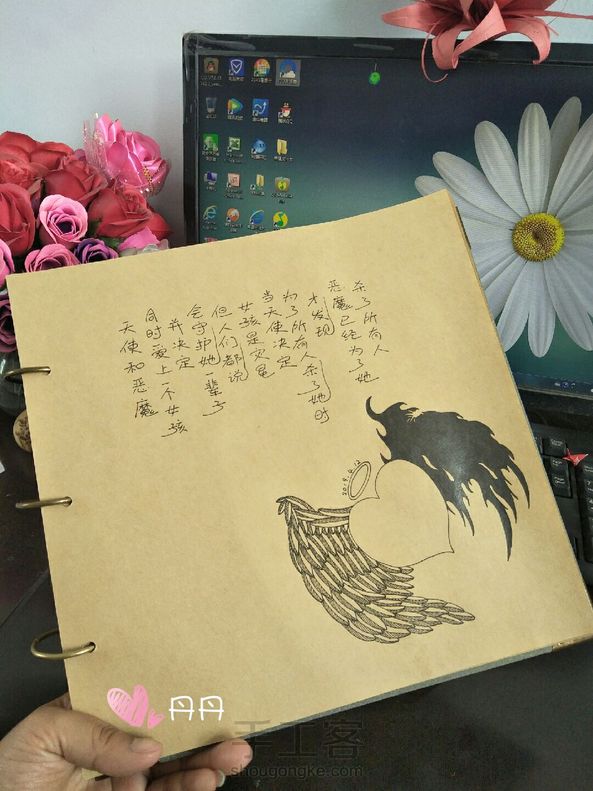 天使和恶魔
同时爱上一个女孩
并决定
会守护她一辈子
但人们都说
女孩是灾星
当天使决定
为了所有人杀了她时
才发现
恶魔已经为了她
杀了所有人
丹丹
手工客
shougongke.com